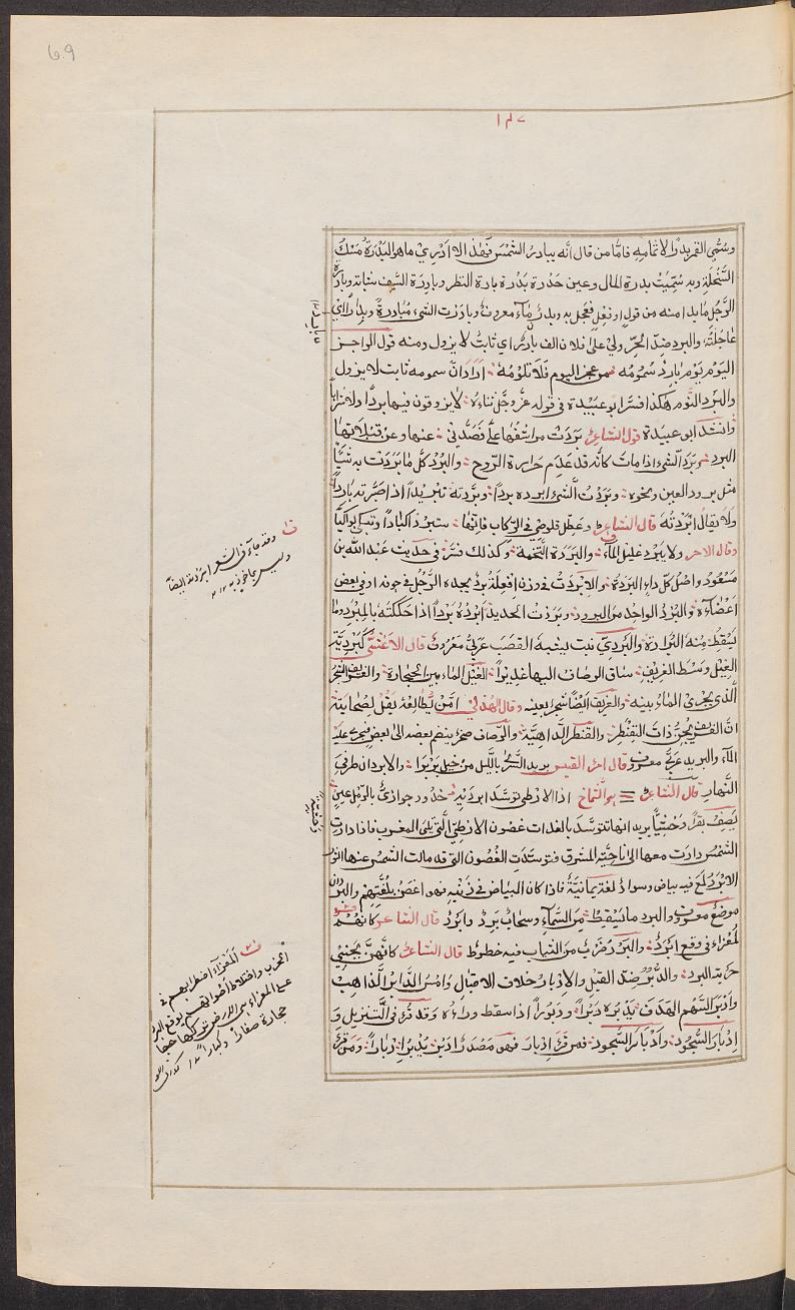 وسُمّي القمر بدرًا لاتمامه فامّا من قال أنّه يبادر الشمْس فَهٰذا لا ادْرِيْ ما هو البَدْرَةُ مَسْكُ
السَّخْلَةِ وبه سُمّيَتْ بدرة المال وعين حَدْرة بَدْرة بادرة النظر وبادرة السَّيف شباته وبادرة
الرَّجُل ما بدا منه من قول او فعل فعجل به وبدر ماء معروف وبادَرْت الشيء مُبادرةً وبدارًا اي
عاجلته والبرد ضدّ الحَرّ ولي على فلان الف باردٌ اي ثابتٌ لا يزول ومنه قول الراجز
اليَوْم يَوْم باردٌ سَمُومُه من عجز اليوم فَلَا تلومُهْ اَرَادَ انّ سمومه ثابت لا يزول
والبَرْد النّوم هٰكذا فسّر ابو عبيدة في قوله عزّ وجلّ ثناءه لا يذوقون فيها بردًا ولا شرابًا
وانشد ابو عبيدة قول الشاعر بَرَدَت مراشفها عليّ فصَدّني عنها وعن قبلاتها
البرد وبَرَدَ الشيء اذا مات كأنه قد عَدِمَ حَرارة الرّوح والبَرُد كلّ ما بَرَدْت به شيئًا
مثل برود العين ونحوه وبَرَدْتُ الشيء ابرده بردًا وبَرّدته تبريدًا اذا صيّرته باردًا
ولا يقال ابْرَدْتُه قال الشاعر وعطّل قلوصي في الرّكاب فانّها ستبرد اكبادًا وتبكي بواكيا
وقال الاخر ولا يبرد غليل الماء والبَرَدَة التُّخمة وكذلك فسّر في حديث عبد الله بن
مَسْعُود واصل كلّ داء البَرَدَة والابْرَدَة في وزن افعِلَة بردٌ يجده الرَّجُل في جوفه او في بعض
اعضائه والبُرْد الواحد من البرود وبَرَدْت الحديد ابرُده بَرْدًا اذا حككته بالمِبْرد وما
يَسْقُط منه البُرادة والبَرْدِيّ نبت يشبه القصب عربيّ معروف قال الاعشى كَبَرْدِيّة
الغِيْل وَسْط الغريف ساق الرصاف اليها غديرًا الغَيْل الماء بين الحجارة والغريف الشجر
الّذي يجري الماء بينه والغريف ايضًا شجر بعينه وقال الهذلي
انّ الغريف يُجِنُّ ذات القنطر والقنطر الدّاهية والرّصاف صخر ينضم بعضه الى بعض فيجري عليه
الماء والبريد عربيّ معروف قال امرء القيس بريد السّرى باللّيل من خيل بربرا والابردان طرفي
النّهار قال الشاعر هو الشّمّاخ اذا الارطى توسّد ابردَيه خُدود جوازئ بالرّمل عين
يَصِفُ بقرًا وحشيًّا يريد انها تتوسّد بالغدات غصون الارطى التي تلى المغرب فاذا دارت
الشمس دارت معها الى ناحية المشرق فتوسّدت الغُصون التي قد مالت الشمس عنها
الابْرَد لمع فيه بياض وسواد لغة يمانيّة فاذا كان البياض في ذَنَبِه فهو اعْصَمُ بلُغَتِهم والبردان
موضع معروف والبرد ما يَسْقُط مِنَ السّماء وسحاب بَرِدٌ وابْرَدُ قال الشاعر كانهم
المَعْزاء في وقع ابْرَدَ والبُرد ضربٌ من الثّياب فيه خطوط قال الشاعر كانّهنّ يجتني
خريدة البرد والدُّبُر ضدّ القُبُل والادبار خلاف الاقبال وامس الدّابر الذّاهب
وادْبَرَ السّهم الهَدَف يَدْبُره دَبْرًا ودُبُورًا اذا سقط وراءه وقد قُرئ في التَّنزيل وَ
اِدْبَارَ السُّجُود واَدْبَارَ السُّجُود فمن قرأ اِدْبار فهو مَصْدر ادبر يُدْبِر اِدْبارًا ومن قرأ
وقد جاء في الشعر ابردته ايضًا
وليس بمأخوذ به
المَعْزاء اضطرابهم في
الحرب واختلاط اصواتهم بوقع البرد
على المعزاء من الارض تركبها
حجارة صغار وكبار